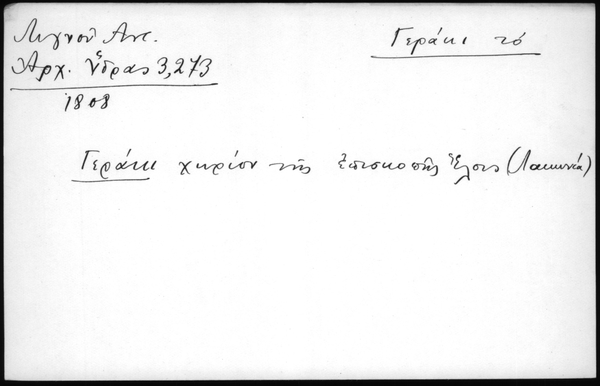 Λιγνοῦ Ἀντ.
Ἀρχ. Ὕδρας 3,273
1808
Γεράκι τό
Γεράκι χωρίον τῆς ἐπισκοπῆς Ἕλους (Λακωνία)